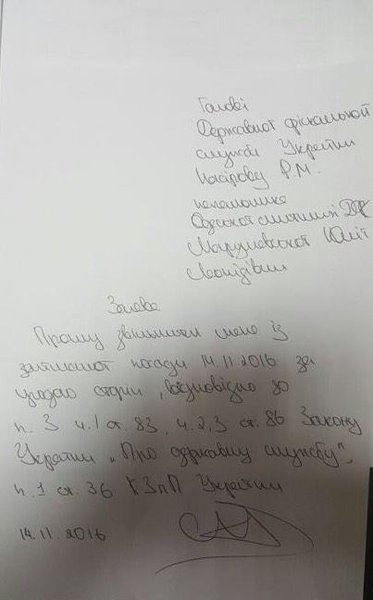 Голові
Державної фіскальної
служби України
Насірову Р.М.
начальника
Одеської митниці ДФС
Марушевської Юлії
Леонідівни
Заява
Прошу звільнити мене із
займаної посади 14.11.2016 за
угодою сторін, відповідно до
п. 3 ч.1 ст. 83, ч. 2,3 ст. 86 Закону
України „Про державну службу",
п. 1 ст. 36 КЗпП України
14.11.2016